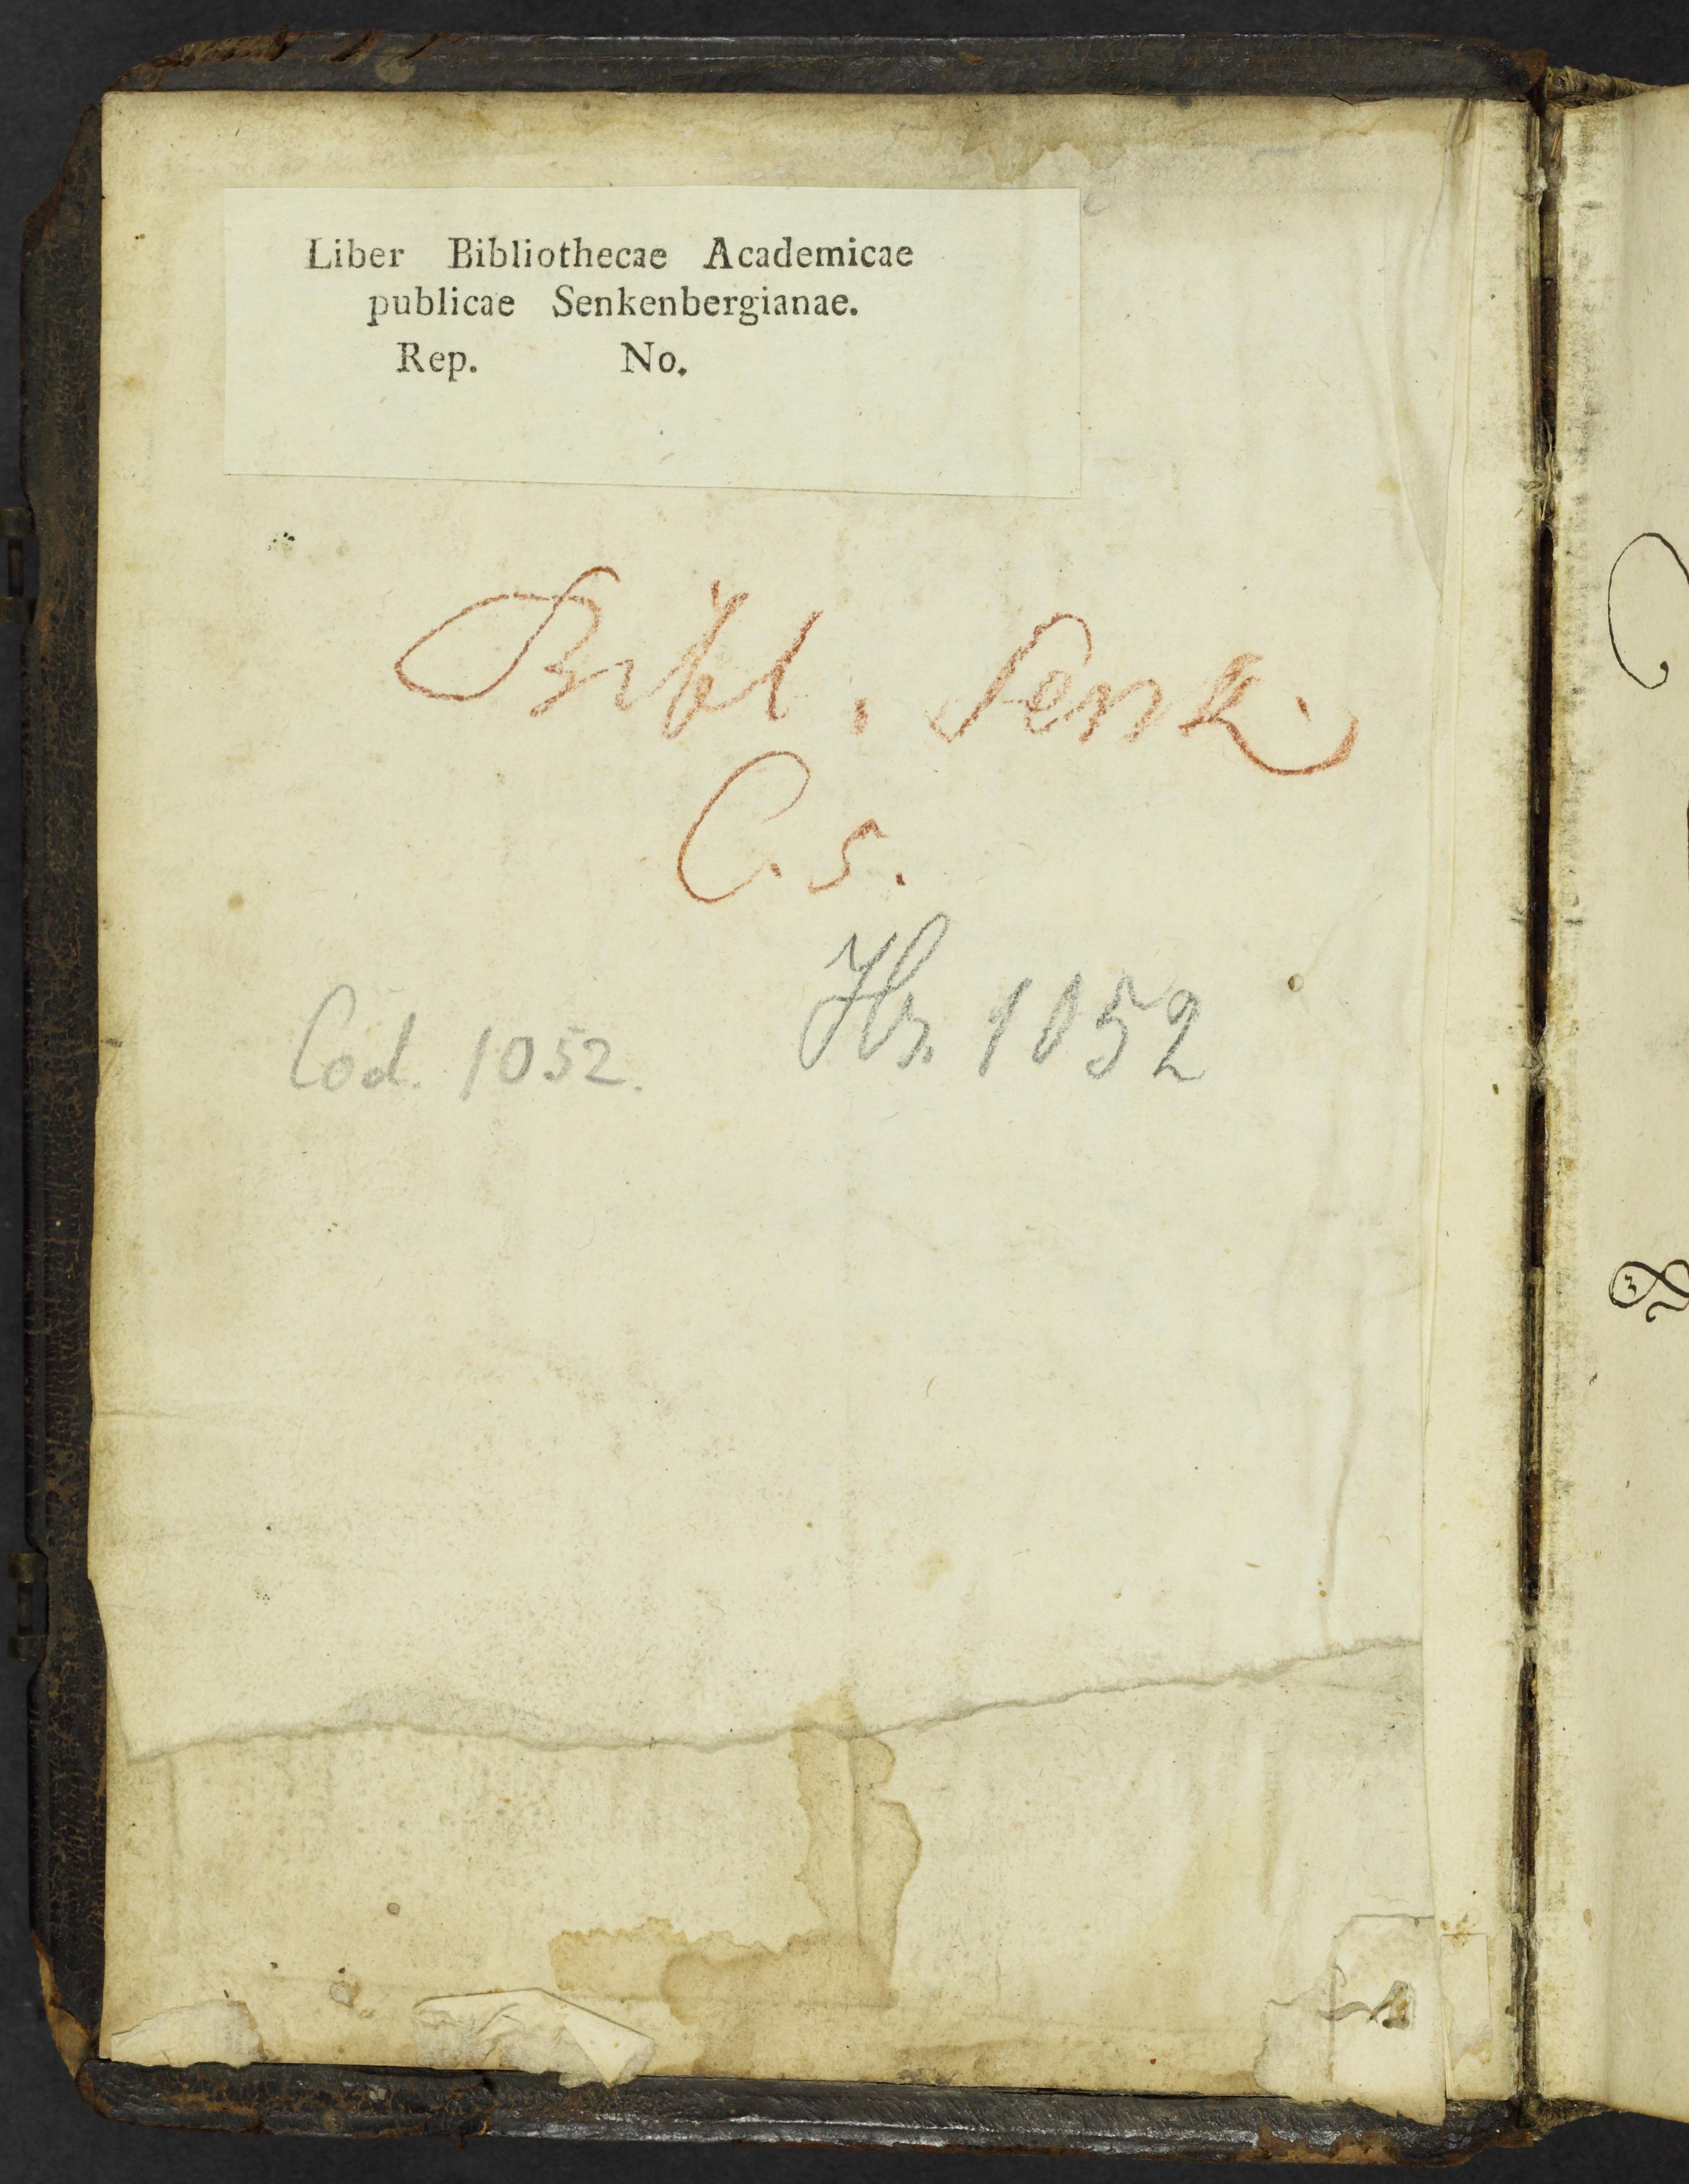 Liber Bibliothecae Academicae
publicae Senkenbergianae.
Rep. No.
Bibl. Senk.
C. s.
Cod. 1052. Hs. 1052